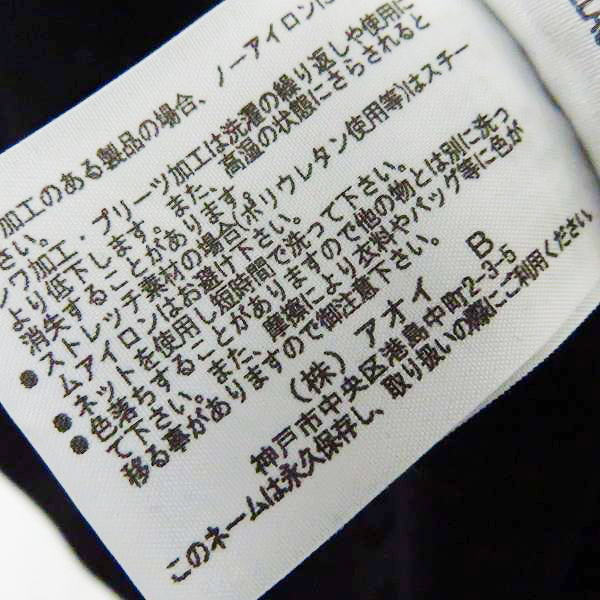 加工のある製品の場合、ノーアイロンに
さい。
ノワ加工・プリーツ加工は洗濯の繰り返しや使用に
より低下します。また、高湿の状態にさらされると
消失することがあります。
●ストレッチ素材の場合(ポリウレタン使用等)はスチー
ムアイロンはお避け下さい。
●ネットを使用し短時間で洗って下さい。
●色落ちすることがありますので他の物とは別に洗っ
て下さい。また、摩擦により衣料やバッグ等に色が
移る事がありますので御注意下さい。
(株)アオイ B
神戸市中央区港島中町2-3-5
このネームは永久保存し、取り扱いの際にご利用ください